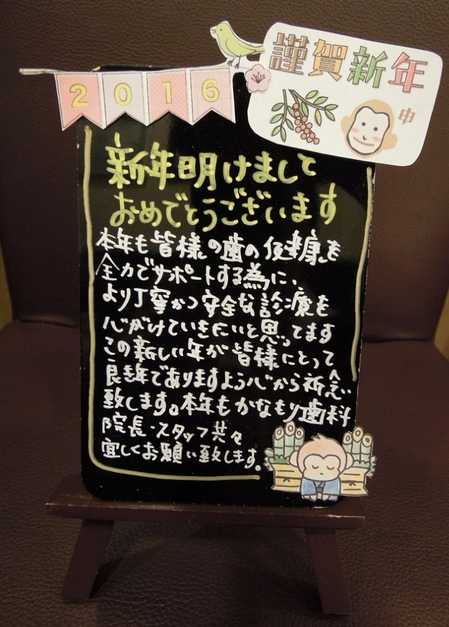 2016
謹賀新年
申
新年明けまして
おめでとうございます
本年も皆様の歯の健康を
全力でサポートする為に、
より丁寧かつ安全な診療を
心がけていきたいと思ってます
この新しい年が皆様にとって
良き年でありますよう心から祈念
致します。本年もかなもり歯科
院長・スタッフ共々
宜しくお願い致します。